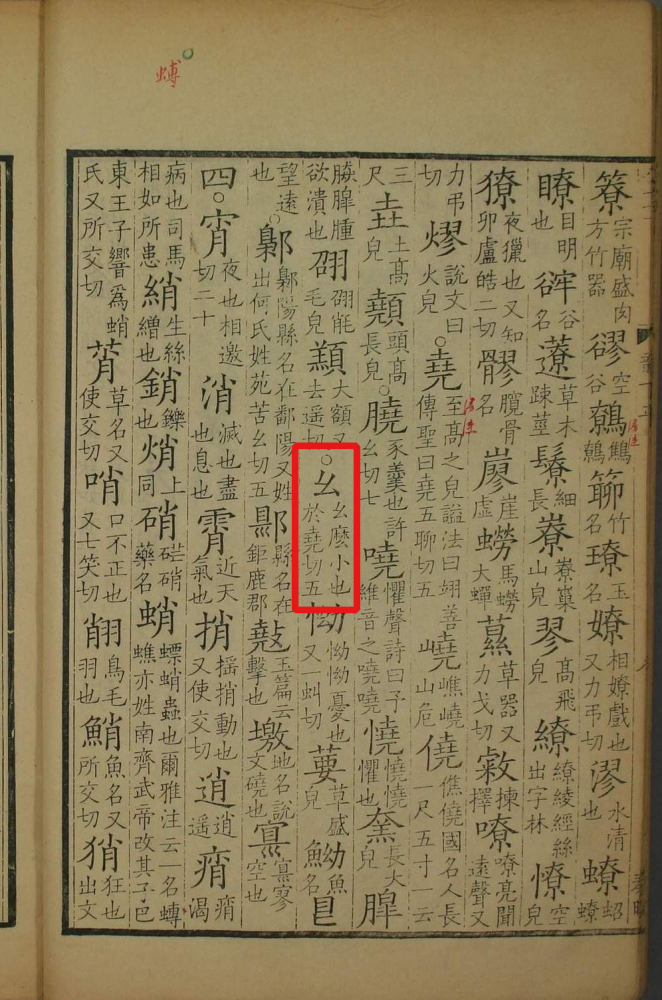 䗚
簝宗廟盛肉方竹器豂空谷鷯鷦鷯竹名璙玉名嫽相嫽戲也又力弔切漻水清也蟟蛁蟟
瞭目明也谷名草木踈莖細長嶚嶚巢山皃翏高飛皃繚繚綾經絲出字林憭空皃
獠夜獵也又知卯盧皓二切髎髖骨名廫崖虛蟧馬蟧大蟬草器又力戈切敹揀擇嘹嘹亮聞遠聲又
力弔切熮說文曰火皃○堯至高之皃謚法曰翊善傳聖曰堯五聊切五嶢嶕嶢山危僥僬僥國名人長一尺五寸一云
三尺垚土高皃顤頭高長皃○膮豕羹也許幺切七嘵懼聲詩曰予維音之嘵嘵憢憢憢懼也長大皃
腫欲潰也毛皃大額又去遥切○幺幺麽小也於堯切五怮怮怮憂也又一虬切葽草盛皃魚名
望遠也○鄡鄡陽縣名在鄱陽又姓出何氏姓苑苦幺切五郻縣名在鉅鹿郡玉篇云擊也墽地名說文磽也寥空也
四○宵夜也相邀切二十消滅也盡也息也霄近天氣也捎搖捎動也又使交切逍逍遥痟痟渴
病也司馬相如所患綃生絲繒也銷鑠也焇上同硝硭硝藥名蛸螵蛸蟲也爾雅注云一名䗚蟭亦姓南齊武帝改其子巴
東王子響爲蛸氏又所交切莦草名又使交切哨口不正也又七笑切鳥毛羽也鮹魚名又所交切狂也出文